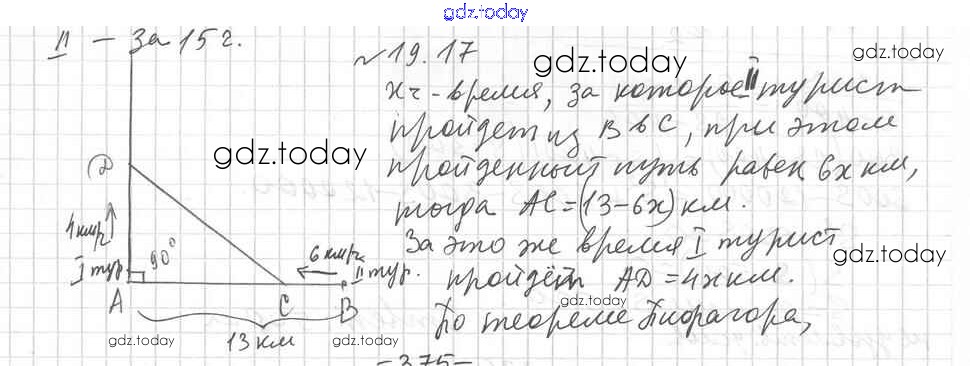 gdz.today
II – за 15 г.
№ 19.17
gdz.today
gdz.today
x ч - время, за которое II турист
пройдет из B в C, при этом
gdz.today
пройденный путь равен 6x км,
D
тогда AC = (13 – 6x) км.
4 км/ч
За это же время I турист
90°
6 км/ч
gdz.today
I тур.
II тур.
пройдёт AD = 4x км.
A
C
B
gdz.today
По теореме Пифагора,
gdz.today
13 км
gdz.today
gdz.today
– 375 –